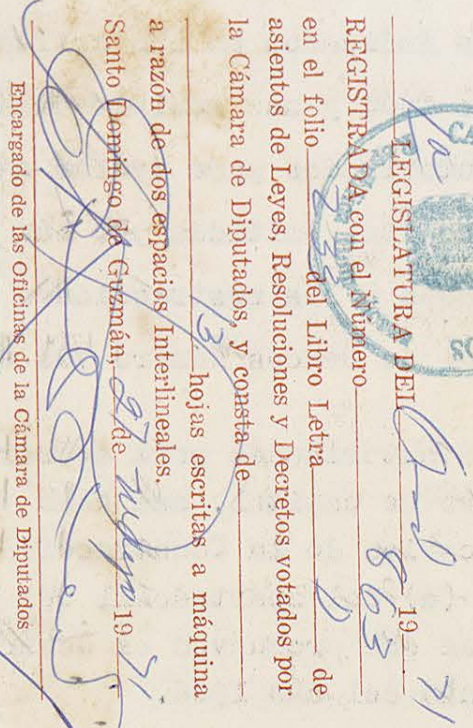 1a LEGISLATURA DEL Ord. 19 71
REGISTRADA con el Número 863
en el folio 233 del Libro Letra D de
asientos de Leyes, Resoluciones y Decretos votados por
la Cámara de Diputados, y consta de
13 hojas escritas a máquina
a razón de dos espacios Interlineales.
Santo Domingo de Guzmán, 27 de 19 71
Encargado de las Oficinas de la Cámara de Diputados